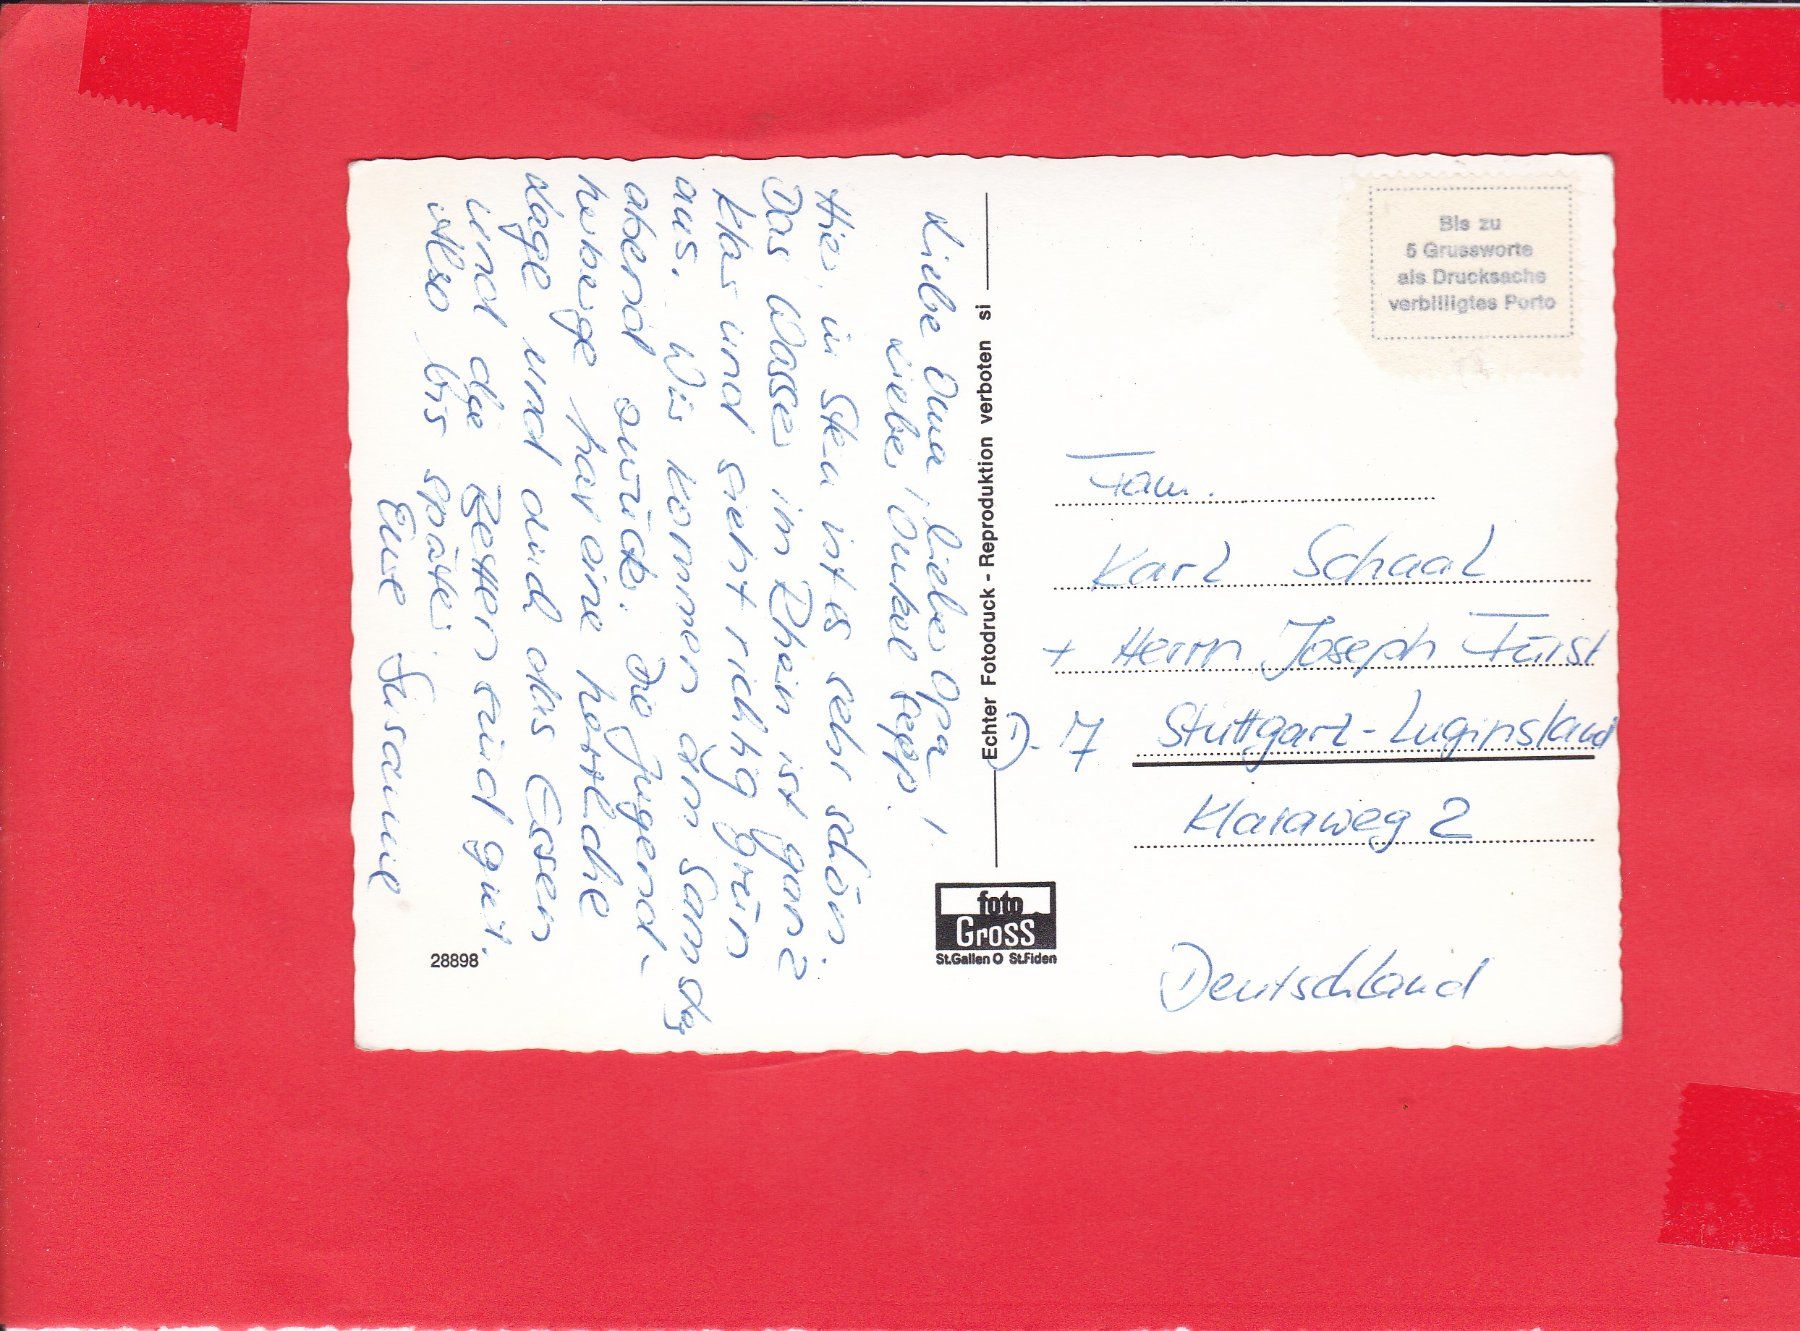 Liebe Oma, lieber Opa!
Lieber Onkel Sepp!
Hier in Stein ist es sehr schön.
Das Wasser im Rhein ist ganz
klar und sieht richtig grün
aus. Wir kommen am Samstag
abend zurück. Die Jugend-
herberge hat eine herrliche
Lage und auch das Essen
und die Betten sind gut.
Also bis später
Eure Susanne
28898
Echter Fotodruck - Reproduktion verboten si
foto
Gross
St.Gallen O St.Fiden
Bis zu
5 Grussworte
als Drucksache
verbilligtes Porto
Fam.
Karl Schaal
+ Herrn Joseph Fürst
D. 7 Stuttgart-Luginsland
Klaraweg 2
Deutschland